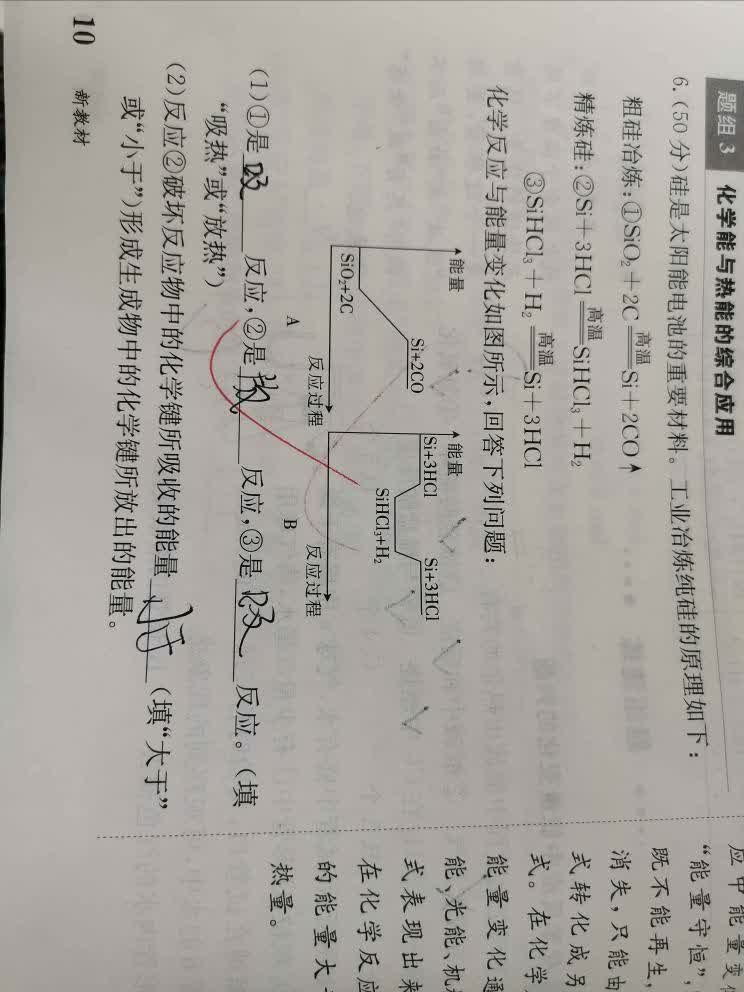 题组 3 化学能与热能的综合应用
6.(50 分)硅是太阳能电池的重要材料。工业冶炼纯硅的原理如下:
粗硅冶炼:①SiO₂+2C══高温══Si+2CO↑
精炼硅:②Si+3HCl══高温══SiHCl₃+H₂
③SiHCl₃+H₂══高温══Si+3HCl
化学反应与能量变化如图所示,回答下列问题:
能量
Si+2CO
SiO₂+2C
反应过程
A
能量
Si+3HCl
SiHCl₃+H₂
Si+3HCl
反应过程
B
(1)①是 吸 反应,②是 放 反应,③是 吸 反应。(填
“吸热”或“放热”)
(2)反应②破坏反应物中的化学键所吸收的能量 小于 (填“大于”
或“小于”)形成生成物中的化学键所放出的能量。
10 新教材
应中能量变
“能量守恒”,
既不能再生,
消失,只能由
式转化成另
式。在化学
能量变化通
能、光能、机
式表现出来
在化学反应
的能量大
热量。